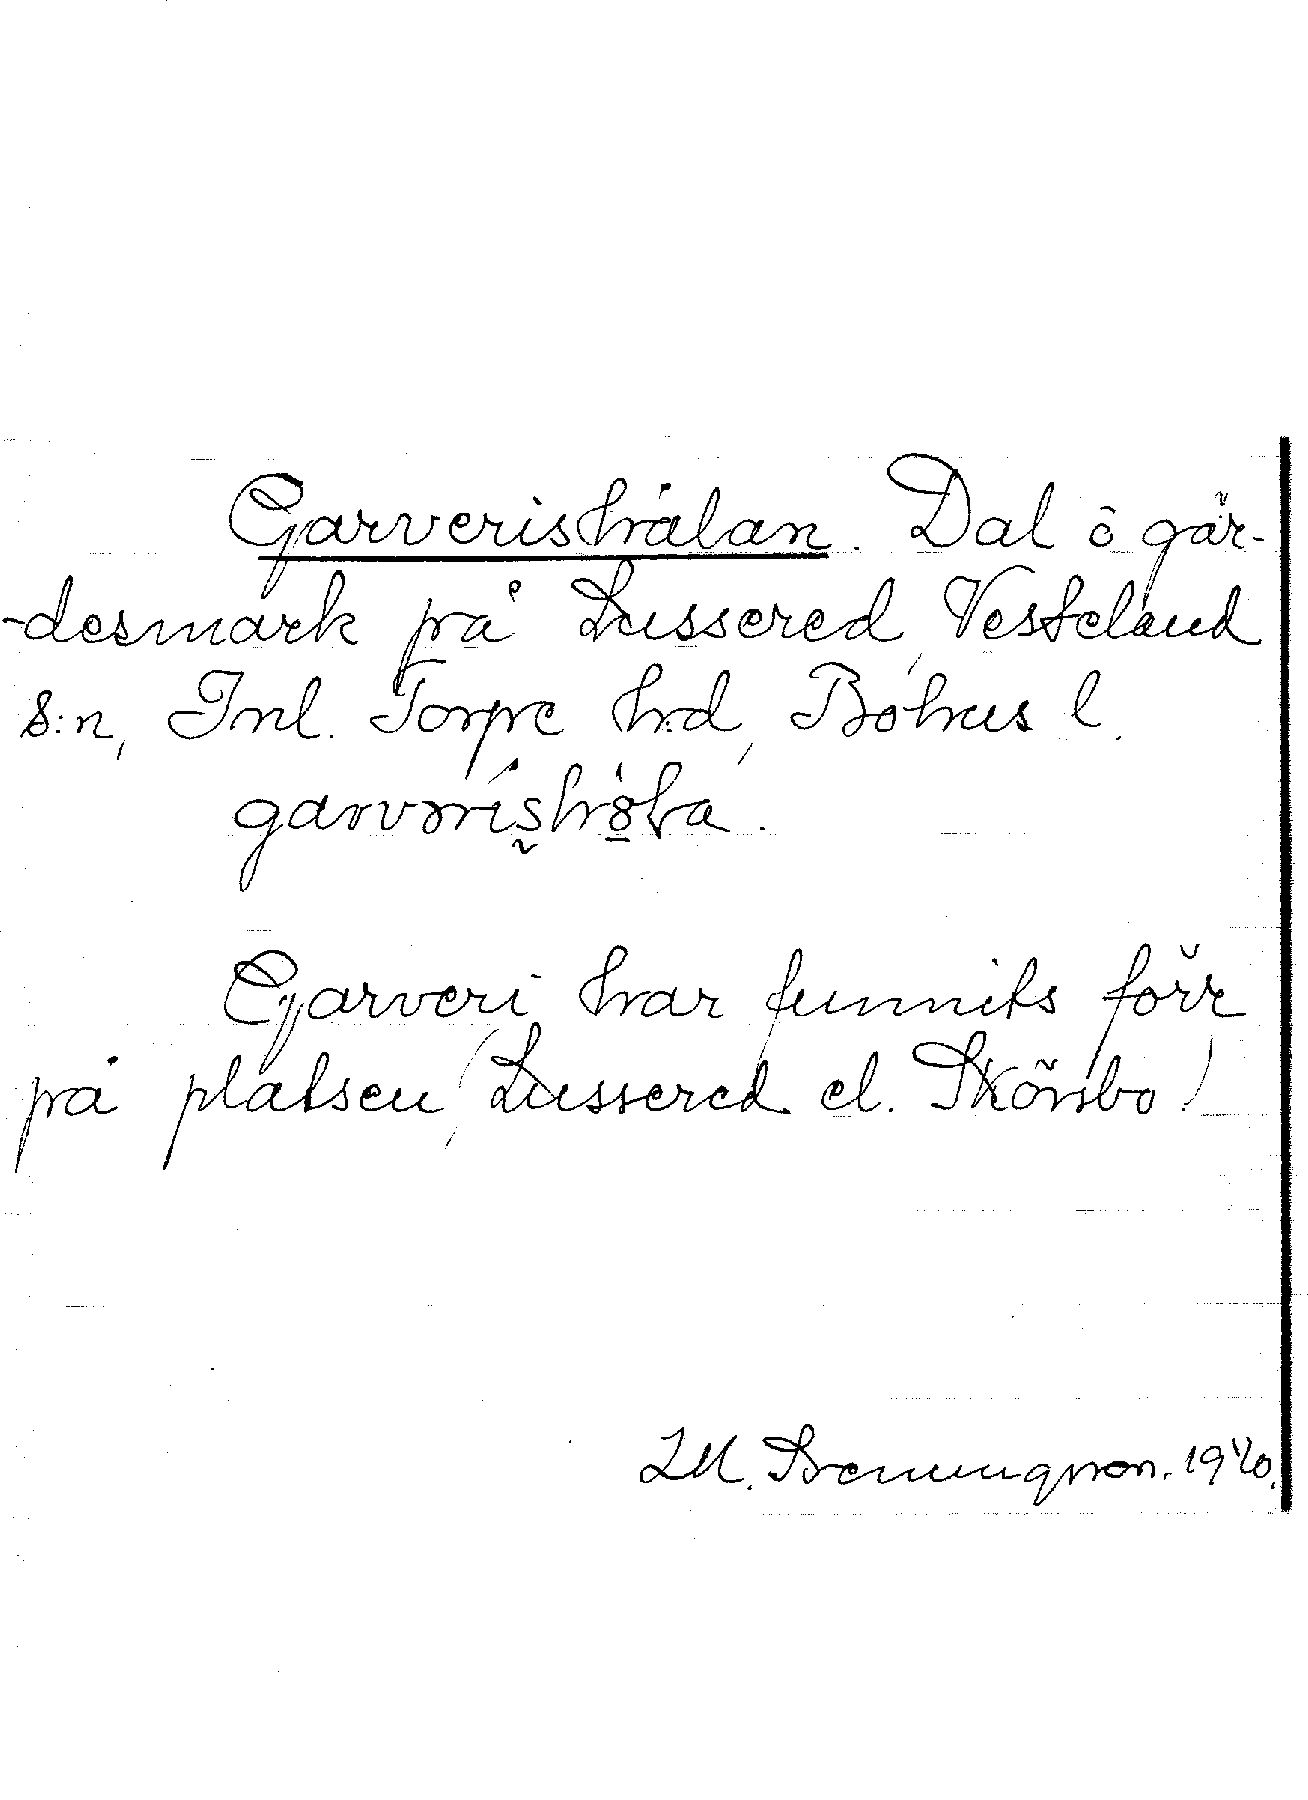 Garverishålan. Dal ō gär-
-desmark på Lussered, Vesteland
s:n, Inl. Torpe h:d, Bohus l.
garvərishòla.
Garveri har funnits förr
på platsen (Lussered el. Skörsbo)
1920.